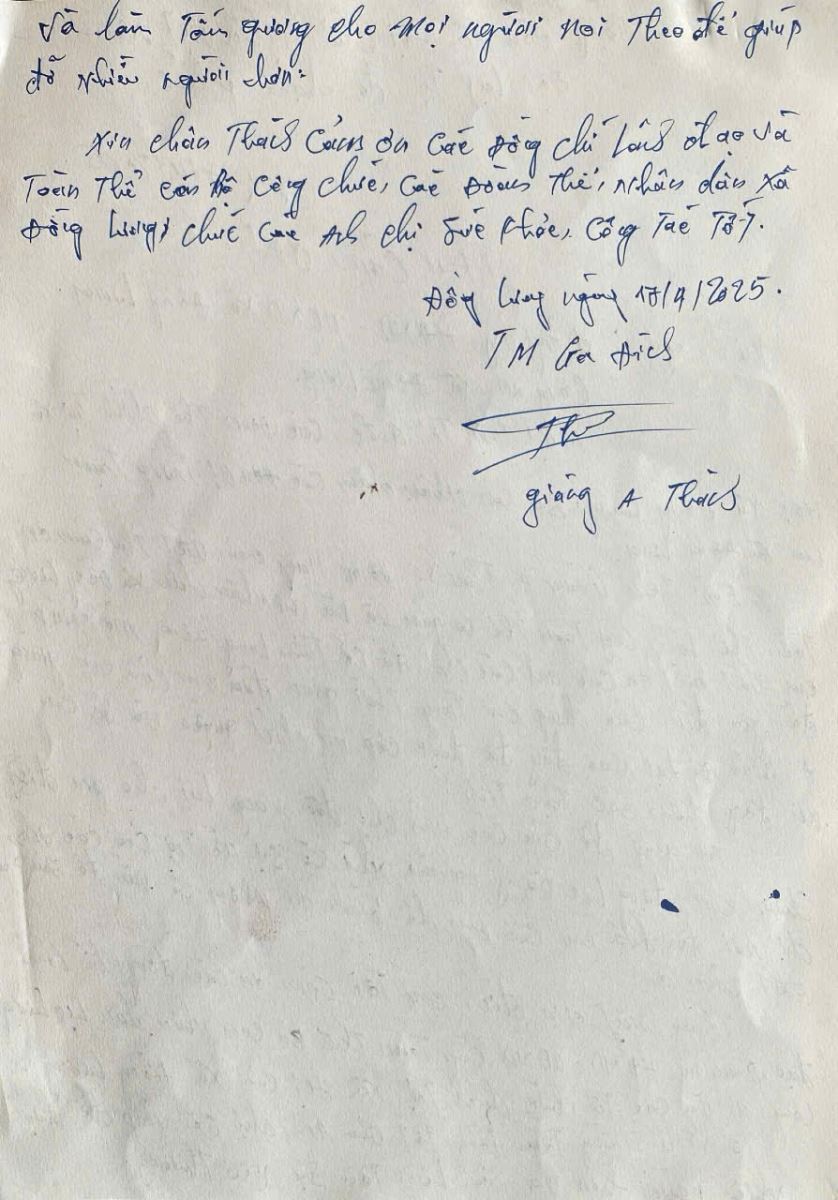 và làm Tấm gương cho mọi người noi Theo để giúp
đỡ nhiều người hơn.
Xin chân Thành Cảm ơn Các Đồng chí Lãnh đạo và
Toàn Thể Cán Bộ Công chức, Các Đoàn Thể, Nhân dân xã
Đồng Lương, chúc Các Anh chị Sức khỏe, Công Tác Tốt.
Đồng Lương ngày 17/4/2025.
TM Gia Đình
Giàng A Thành